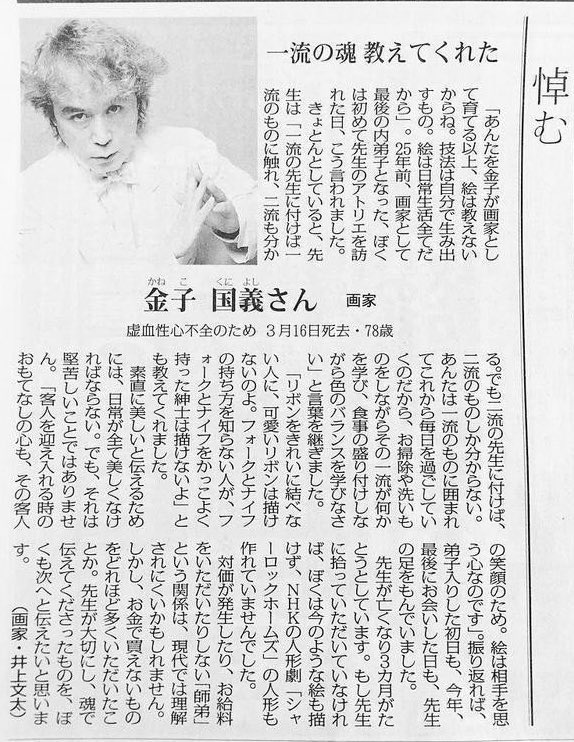 悼む
一流の魂 教えてくれた
「あんたを金子が画家とし
て育てる以上、絵は教えない
からね。技法は自分で生み出
すもの。絵は日常生活全てだ
から」。25年前、画家として
最後の内弟子となった、ぼく
は初めて先生のアトリエを訪
れた日、こう言われました。
きょとんとしていると、先
生は「一流の先生に付けば一
流のものに触れ、二流も分か
かねこ くによし
金子 国義さん 画家
虚血性心不全のため 3月16日死去・78歳
る。でも二流の先生に付けば、
二流のものしか分からない。
あんたは一流のものに囲まれ
てこれから毎日を過ごしてい
くのだから、お掃除や洗いも
のをしながらその一流が何か
を学び、食事の盛り付けしな
がら色のバランスを学びなさ
い」と言葉を継ぎました。
「リボンをきれいに結べな
い人に、可愛いリボンは描け
ないのよ。フォークとナイフ
の持ち方を知らない人が、フ
ォークとナイフをかっこよく
持った紳士は描けないよ」と
も教えてくれました。
素直に美しいと伝えるため
には、日常が全て美しくなけ
ればならない。でも、それは
堅苦しいことではありませ
ん。「客人を迎え入れる時の
おもてなしの心も、その客人
の笑顔のため。絵は相手を思
う心なのです」。振り返れば、
弟子入りした初日も、今年、
最後にお会いした日も、先生
の足をもんでいました。
先生が亡くなり3カ月がた
とうとしています。もし先生
に拾っていただいていなけれ
ば、ぼくは今のような絵も描
けず、NHKの人形劇「シャ
ーロックホームズ」の人形も
作れていませんでした。
対価が発生したり、お給料
をいただいたりしない「師弟」
という関係は、現代では理解
されにくいかもしれません。
しかし、お金で買えないもの
をどれほど多くいただいたこ
とか。先生が大切にし、魂で
伝えてくださったものを、ぼ
くも次へと伝えたいと思いま
す。 （画家・井上文太）